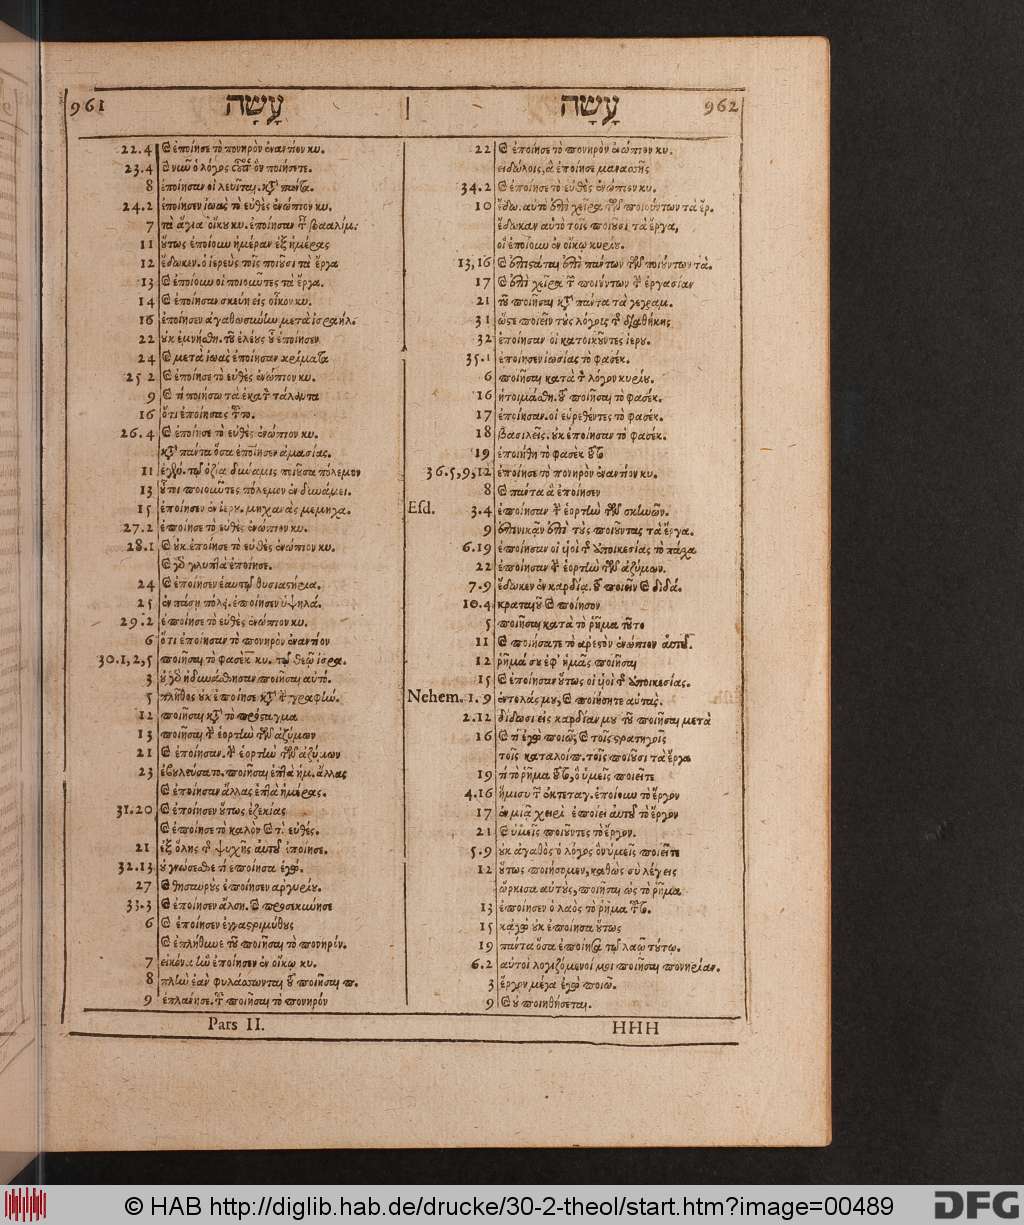 961 עָשָׂה עָשָׂה 962
22.4 Ϗ ἐποίησε τὸ πονηρὸν ἐναντίον κυ.
23.4 Ϗ νῦν ὁ λόγος ὃν ποιήσετε.
8 ἐποίησαν οἱ λευῖται, κτ᾽ πάντα.
24.2 ἐποίησεν ἰωας τὸ εὐθὲς ἐνώπιον κυ.
7 τὰ ἅγια οἴκου κυ. ἐποίησαν τ͂ βααλίμ.
11 οὕτως ἐποίουν ἡμέραν ἐξ ἡμέρας
12 ἔδωκεν. ὁ ἱερεὺς τοῖς ποιοῦσι τὰ ἔργα
13 Ϗ ἐποίουν οἱ ποιοῦντες τὰ ἔργα.
14 Ϗ ἐποίησαν σκεύη εἰς οἶκον κυ.
16 ἐποίησεν ἀγαθωσύνην μετὰ ἰσραήλ.
22 οὐκ ἐμνήσθη. τοῦ ἐλέους οὗ ἐποίησεν
24 Ϗ μετὰ ἰωας ἐποίησαν κρίματα
25 2 Ϗ ἐποίησε τὸ εὐθὲς ἐνώπιον κυ.
9 Ϗ τί ποιήσω τὰ ἑκατ τάλαντα
16 ὅτι ἐποίησας τ͂το.
26.4 Ϗ ἐποίησε τὸ εὐθὲς ἐνώπιον κυ.
κτ᾽ πάντα ὅσα ἐποίησεν ἀμασίας.
11 τῷ ὀζίᾳ δυνάμις ποιοῦσα πόλεμον
13 οὗτοι ποιοῦντες πόλεμον ἐν δυνάμει.
15 ἐποίησεν ἐν ἱερυ. μηχανὰς μεμηχα.
27.2 ἐποίησε τὸ εὐθὲς ἐνώπιον κυ.
28.1 Ϗ οὐκ ἐποίησε τὸ εὐθὲς ἐνώπιον κυ.
Ϗ γὸ γλυπτὰ ἐποίησε.
24 Ϗ ἐποίησεν ἑαυτῷ θυσιαστήρια.
25 ἐν πάσῃ πόλ. ἐποίησεν ὑψηλά.
29.2 ἐποίησε τὸ εὐθὲς ἐνώπιον κυ.
6 ὅτι ἐποίησαν τὸ πονηρὸν ἐναντίον
30.1,2,5 ποιῆσαι τὸ φασὲκ κυ. τῷ θεῷ ἰσρα.
3 οὐ γὸ ἠδυνάσθησαν ποιῆσαι αὐτό.
5 πλῆθος οὐκ ἐποίησε κτ᾽ τ γραφήν.
12 ποιῆσαι κτ᾽ τὸ πρόσταγμα
13 ποιῆσαι τ ἑορτὴν τῶν ἀζύμων
21 Ϗ ἐποίησαν. τ ἑορτὴν τῶν ἀζύμων
23 ἐβουλεύσατο. ποιῆσαι ἑπτὰ ἡμ. ἄλλας
Ϗ ἐποίησαν ἄλλας ἑπτὰ ἡμέρας.
31.20 Ϗ ἐποίησεν οὕτως ἐζεκίας
Ϗ ἐποίησε τὸ καλὸν Ϗ τὸ εὐθές.
21 ἐξ ὅλης τ ψυχῆς αὐτοῦ ἐποίησε.
32.13 οὐ γνώσεσθε τί ἐποίησα ἐγώ.
27 Ϗ θησαυροὺς ἐποίησεν ἀργυρίου.
33.3 Ϗ ἐποίησεν ἄλση. Ϗ προσεκύνησε
6 Ϗ ἐποίησεν ἐγγαστριμύθους
Ϗ ἐπλήθυνε τοῦ ποιῆσαι τὸ πονηρόν.
7 εἰκόνα ἣν ἐποίησεν ἐν οἴκῳ κυ.
8 πλὴν ἐὰν φυλάσσωνται τοῦ ποιῆσαι π.
9 ἐπλάνησε. τ͂ ποιῆσαι τὸ πονηρὸν
Pars II.
22 Ϗ ἐποίησε τὸ πονηρὸν ἐνώπιον κυ.
εἰδώλοις, ἃ ἐποίησε μανασσῆς
34.2 Ϗ ἐποίησε τὸ εὐθὲς ἐνώπιον κυ.
10 ἔδω. αὐτὸ ἐπὶ χεῖρα τῶν ποιούντων τὰ ἔρ.
ἔδωκαν αὐτὸ τοῖς ποιοῦσι τὰ ἔργα,
οἳ ἐποίουν ἐν οἴκῳ κυρίου.
13,16 Ϗ ἐπιστάται ἐπὶ πάντων τῶν ποιούντων τὰ.
17 Ϗ ἐπὶ χεῖρα τ͂ ποιούντων τ ἐργασίαν
21 τοῦ ποιῆσαι κτ᾽ πάντα τὰ γεγραμ.
31 ὥστε ποιεῖν τοὺς λόγους τ διαθήκης
32 ἐποίησαν οἱ κατοικοῦντες ἱερυ.
35.1 ἐποίησεν ἰωσίας τὸ φασέκ.
6 ποιῆσαι κατὰ τ λόγον κυρίου.
16 ἡτοιμάσθη. τοῦ ποιῆσαι τὸ φασέκ.
17 ἐποίησαν. οἱ εὑρεθέντες τὸ φασέκ.
18 βασιλεῖς. οὐκ ἐποίησαν τὸ φασέκ.
19 ἐποιήθη τὸ φασὲκ τοῦτο
36.5,9,12 ἐποίησε τὸ πονηρὸν ἐναντίον κυ.
8 Ϗ πάντα ἃ ἐποίησεν
Esd. 3.4 ἐποίησαν τ ἑορτὴν τῶν σκηνῶν.
9 ἐπινικᾷν ἐπὶ τοὺς ποιοῦντας τὰ ἔργα.
6.19 ἐποίησαν οἱ υἱοὶ τ ἀποικεσίας τὸ πάσχα
22 ἐποίησαν τ ἑορτὴν τῶν ἀζύμων.
7.9 ἔδωκεν ἐν καρδίᾳ. τοῦ ποιεῖν Ϗ διδά.
10.4 κραταιοῦ Ϗ ποίησον
5 ποιῆσαι κατὰ τὸ ῥῆμα τοῦτο
11 Ϗ ποιήσατε τὸ ἀρεστὸν ἐνώπιον αὐτοῦ.
12 ῥῆμά σου ἐφ᾽ ἡμᾶς ποιῆσαι
15 Ϗ ἐποίησαν οὕτως οἱ υἱοὶ τ ἀποικεσίας.
Nehem. 1. 9 ἐντολάς μου, Ϗ ποιήσητε αὐτὰς.
2.12 δίδωσι εἰς καρδίαν μου τοῦ ποιῆσαι μετὰ
16 Ϗ τί ἐγὼ ποιῶ Ϗ τοῖς στρατηγοῖς
τοῖς καταλοίπ. τοῖς ποιοῦσι τὰ ἔργα
19 τί τὸ ῥῆμα τοῦτο, ὃ ὑμεῖς ποιεῖτε
4.16 ἥμισυ τ͂ ἐκτεταγ. ἐποίουν τὸ ἔργον
17 ἐν μιᾷ χειρὶ ἐποίει αὐτοῦ τὸ ἔργον
21 Ϗ ὑμεῖς ποιοῦντες τὸ ἔργον.
5.9 οὐκ ἀγαθὸς ὁ λόγος ὃν ὑμεῖς ποιεῖτε
12 οὕτως ποιήσομεν, καθὼς σὺ λέγεις
ὥρκισα αὐτοὺς, ποιῆσαι ὡς τὸ ῥῆμα
13 ἐποίησεν ὁ λαὸς τὸ ῥῆμα τοῦτο.
15 κἀγὼ οὐκ ἐποίησα οὕτως
19 πάντα ὅσα ἐποίησα τῷ λαῷ τούτῳ.
6.2 αὐτοὶ λογιζόμενοί μοι ποιῆσαι πονηρίαν.
3 ἔργον μέγα ἐγὼ ποιῶ.
9 Ϗ οὐ ποιηθήσεται.
HHH
© HAB http://diglib.hab.de/drucke/30-2-theol/start.htm?image=00489
DFG